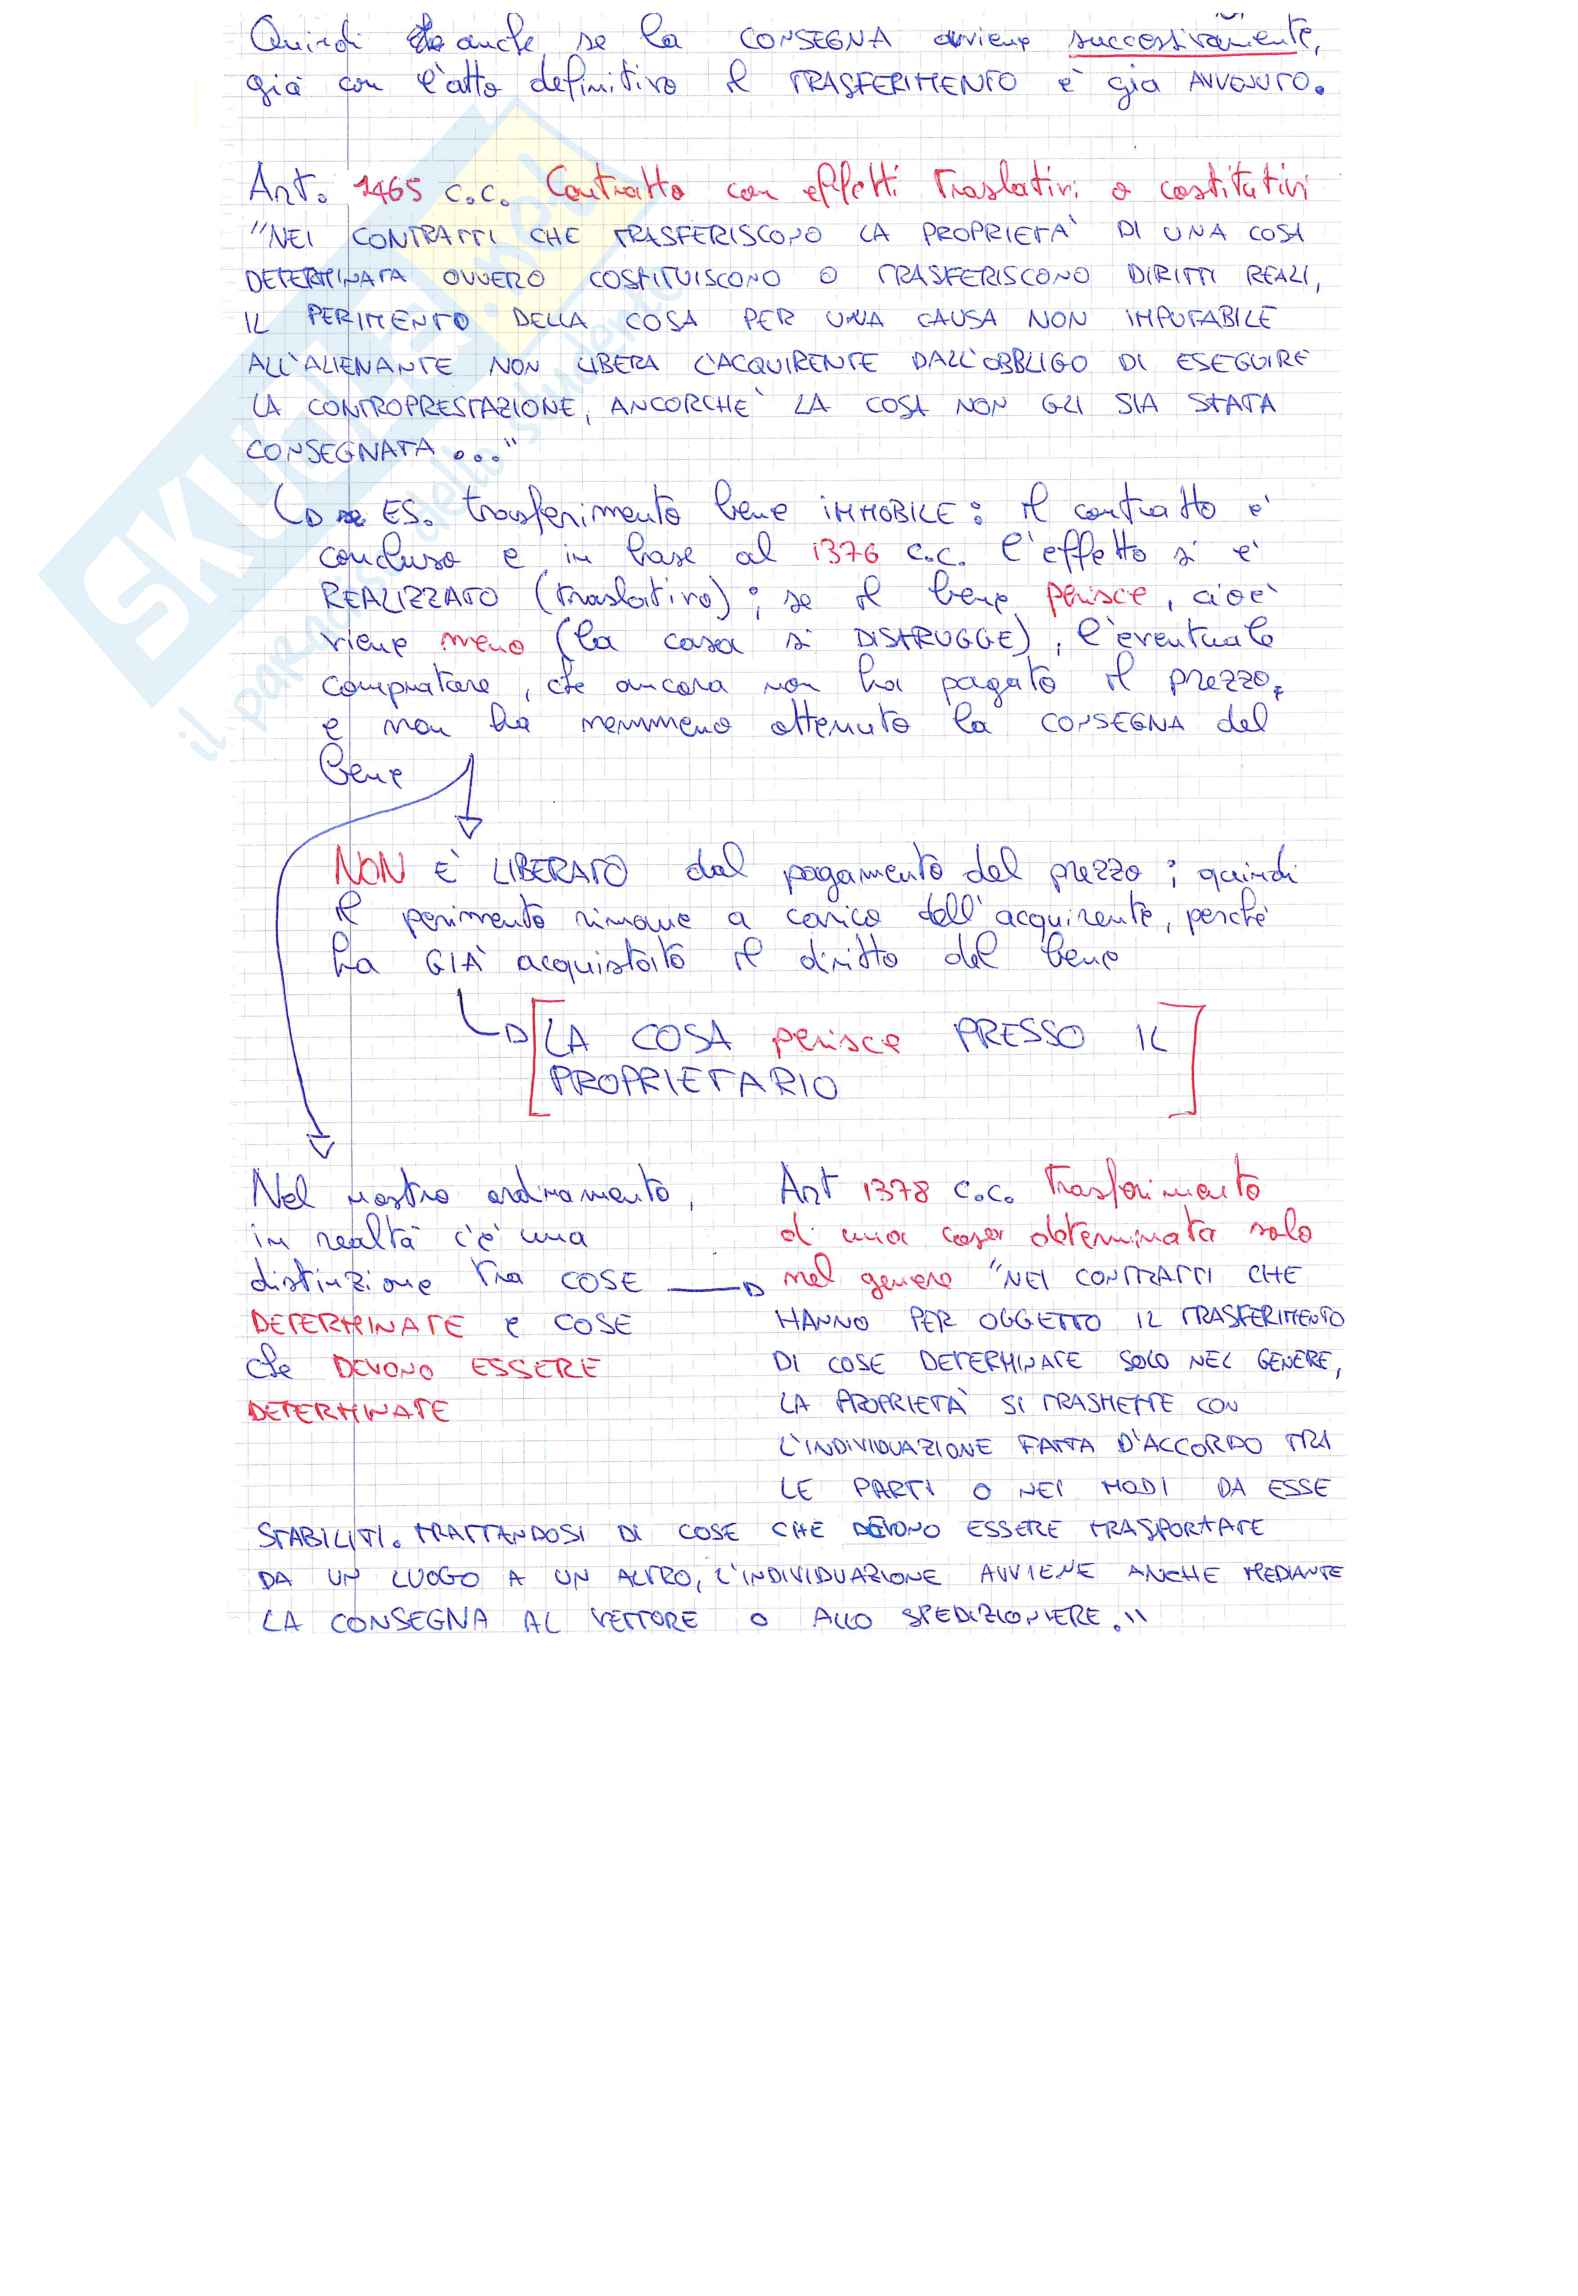 Quindi anche se la CONSEGNA avviene successivamente,
già con l'atto definitivo il TRASFERIMENTO è già AVVENUTO.
Art. 1465 c.c. Contratto con effetti traslativi o costitutivi
"NEI CONTRATTI CHE TRASFERISCONO LA PROPRIETA' DI UNA COSA
DETERMINATA OVVERO COSTITUISCONO O TRASFERISCONO DIRITTI REALI,
IL PERIMENTO DELLA COSA PER UNA CAUSA NON IMPUTABILE
ALL'ALIENANTE NON LIBERA L'ACQUIRENTE DALL'OBBLIGO DI ESEGUIRE
LA CONTROPRESTAZIONE, ANCORCHE' LA COSA NON GLI SIA STATA
CONSEGNATA ..."
ES. trasferimento bene IMMOBILE: il contratto è
concluso e in base al 1376 c.c. l'effetto si è
REALIZZATO (traslativo); se il bene perisce, cioè
viene meno (la casa si DISTRUGGE), l'eventuale
compratore, che ancora non ha pagato il prezzo,
e non ha nemmeno ottenuto la CONSEGNA del
bene
NON È LIBERATO dal pagamento del prezzo; quindi
il perimento rimane a carico dell'acquirente, perché
ha GIÀ acquistato il diritto del bene
[LA COSA perisce PRESSO IL
PROPRIETARIO]
Nel nostro ordinamento,
in realtà c'è una
distinzione tra COSE
DETERMINATE e COSE
che DEVONO ESSERE
DETERMINATE
Art 1378 c.c. Trasferimento
di una cosa determinata solo
nel genere "NEI CONTRATTI CHE
HANNO PER OGGETTO IL TRASFERIMENTO
DI COSE DETERMINATE SOLO NEL GENERE,
LA PROPRIETÀ SI TRASMETTE CON
L'INDIVIDUAZIONE FATTA D'ACCORDO TRA
LE PARTI O NEI MODI DA ESSE
STABILITI. TRATTANDOSI DI COSE CHE DEVONO ESSERE TRASPORTATE
DA UN LUOGO A UN ALTRO, L'INDIVIDUAZIONE AVVIENE ANCHE MEDIANTE
LA CONSEGNA AL VETTORE O ALLO SPEDIZIONIERE."